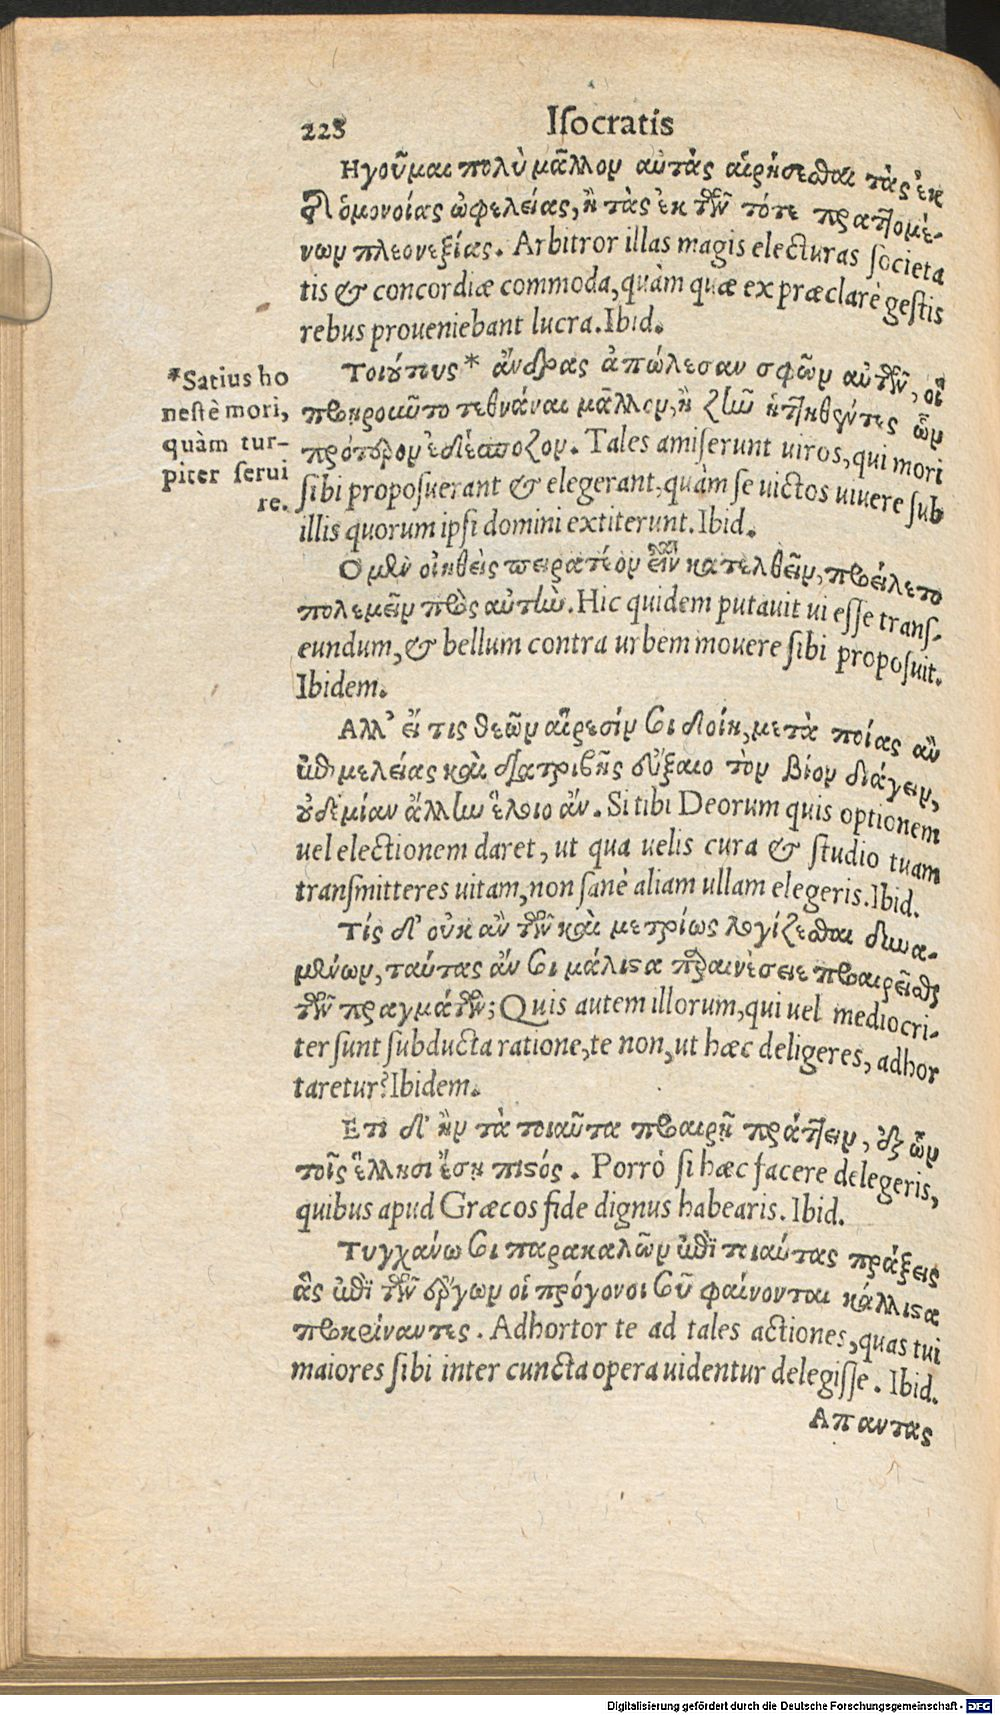 228 Iſocratis
Ηγοῦμαι πολὺ μᾶλλον αὐτὰς αἱρήσεσθαι τὰς ἐκ
τῆς ὁμονοίας ὠφελείας, ἢ τὰς ἐκ τῶν τότε πραττομέ-
νων πλεονεξίας. Arbitror illas magis electuras ſocieta
tis & concordiæ commoda, quàm quæ ex præclarè geſtis
rebus proueniebant lucra. Ibid.
Τοιούτους* ἄνδρας ἀπώλεσαν σφῶν αὐτῶν, οἳ
προῃροῦντο τεθνάναι μᾶλλον, ἢ ζῆν ἡττηθέντες ὧν
πρότερον ἐδέσποζον. Tales amiſerunt uiros, qui mori
ſibi propoſuerant & elegerant, quàm ſe uictos uiuere ſub
illis quorum ipſi domini extiterunt. Ibid.
*Satius ho
neſtè mori,
quàm tur-
piter ſerui
re.
Ο μὲν οἰηθεὶς πειρατέον εἶναι κατελθεῖν, προείλετο
πολεμεῖν πρὸς αὐτὴν. Hic quidem putauit ui eſſe tranſ-
eundum, & bellum contra urbem mouere ſibi propoſuit.
Ibidem.
Αλλ' εἴ τις θεῶν αἵρεσίν σοι δοίη, μετὰ ποίας ἂν
ἐπιμελείας καὶ διατριβῆς εὔξαιο τὸν βίον διάγειν,
οὐδεμίαν ἄλλην ἕλοιο ἄν. Si tibi Deorum quis optionem
uel electionem daret, ut qua uelis cura & ſtudio tuam
tranſmitteres uitam, non ſanè aliam ullam elegeris. Ibid.
Τίς δ' οὐκ ἂν τῶν καὶ μετρίως λογίζεσθαι δυνα-
μένων, ταύτας ἄν σοι μάλιστα παραινέσειε προαιρεῖσθαι
τῶν πραγμάτων; Quis autem illorum, qui uel mediocri-
ter ſunt ſubducta ratione, te non, ut hæc deligeres, adhor
taretur? Ibidem.
Ετι δ' ἢν τὰ τοιαῦτα προαιρῇ πράττειν, ἐξ ὧν
τοῖς ἕλλησι ἔσῃ πιστός. Porrò ſi hæc facere delegeris,
quibus apud Græcos fide dignus habearis. Ibid.
Τυγχάνω σοι παρακαλῶν ἐπὶ τοιαύτας πράξεις
ἃς ἐπὶ τῶν ἔργων οἱ πρόγονοί σοῦ φαίνονται κάλλιστα
προκρίναντες. Adhortor te ad tales actiones, quas tui
maiores ſibi inter cuncta opera uidentur delegiſſe. Ibid.
Απαντας
Digitalisierung gefördert durch die Deutsche Forschungsgemeinschaft - DFG